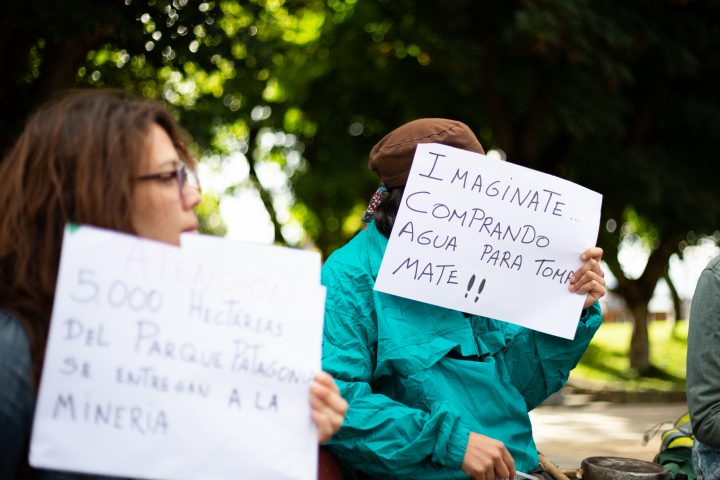 ATENCIÓN
5.000 HECTÁREAS
DEL PARQUE PATAGONIA
SE ENTREGAN A LA
MINERIA
IMAGINATE...
COMPRANDO
AGUA PARA TOMA
MATE!!